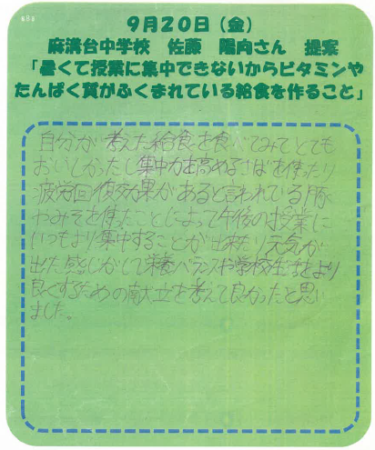 9月20日（金）
麻溝台中学校　佐藤　陽向さん　提案
「暑くて授業に集中できないからビタミンや
たんぱく質がふくまれている給食を作ること」
自分が考えた給食を食べてみてとても
おいしかったし集中力を高めるさばを使たり
疲労回復効果があると言われている豚
やみそを使たことによって午後の授業に
いつもより集中することが出来たり元気が
出た感じがして栄養バランスや学校生活をより
良くするための献立を考えて良かったと思い
ました。